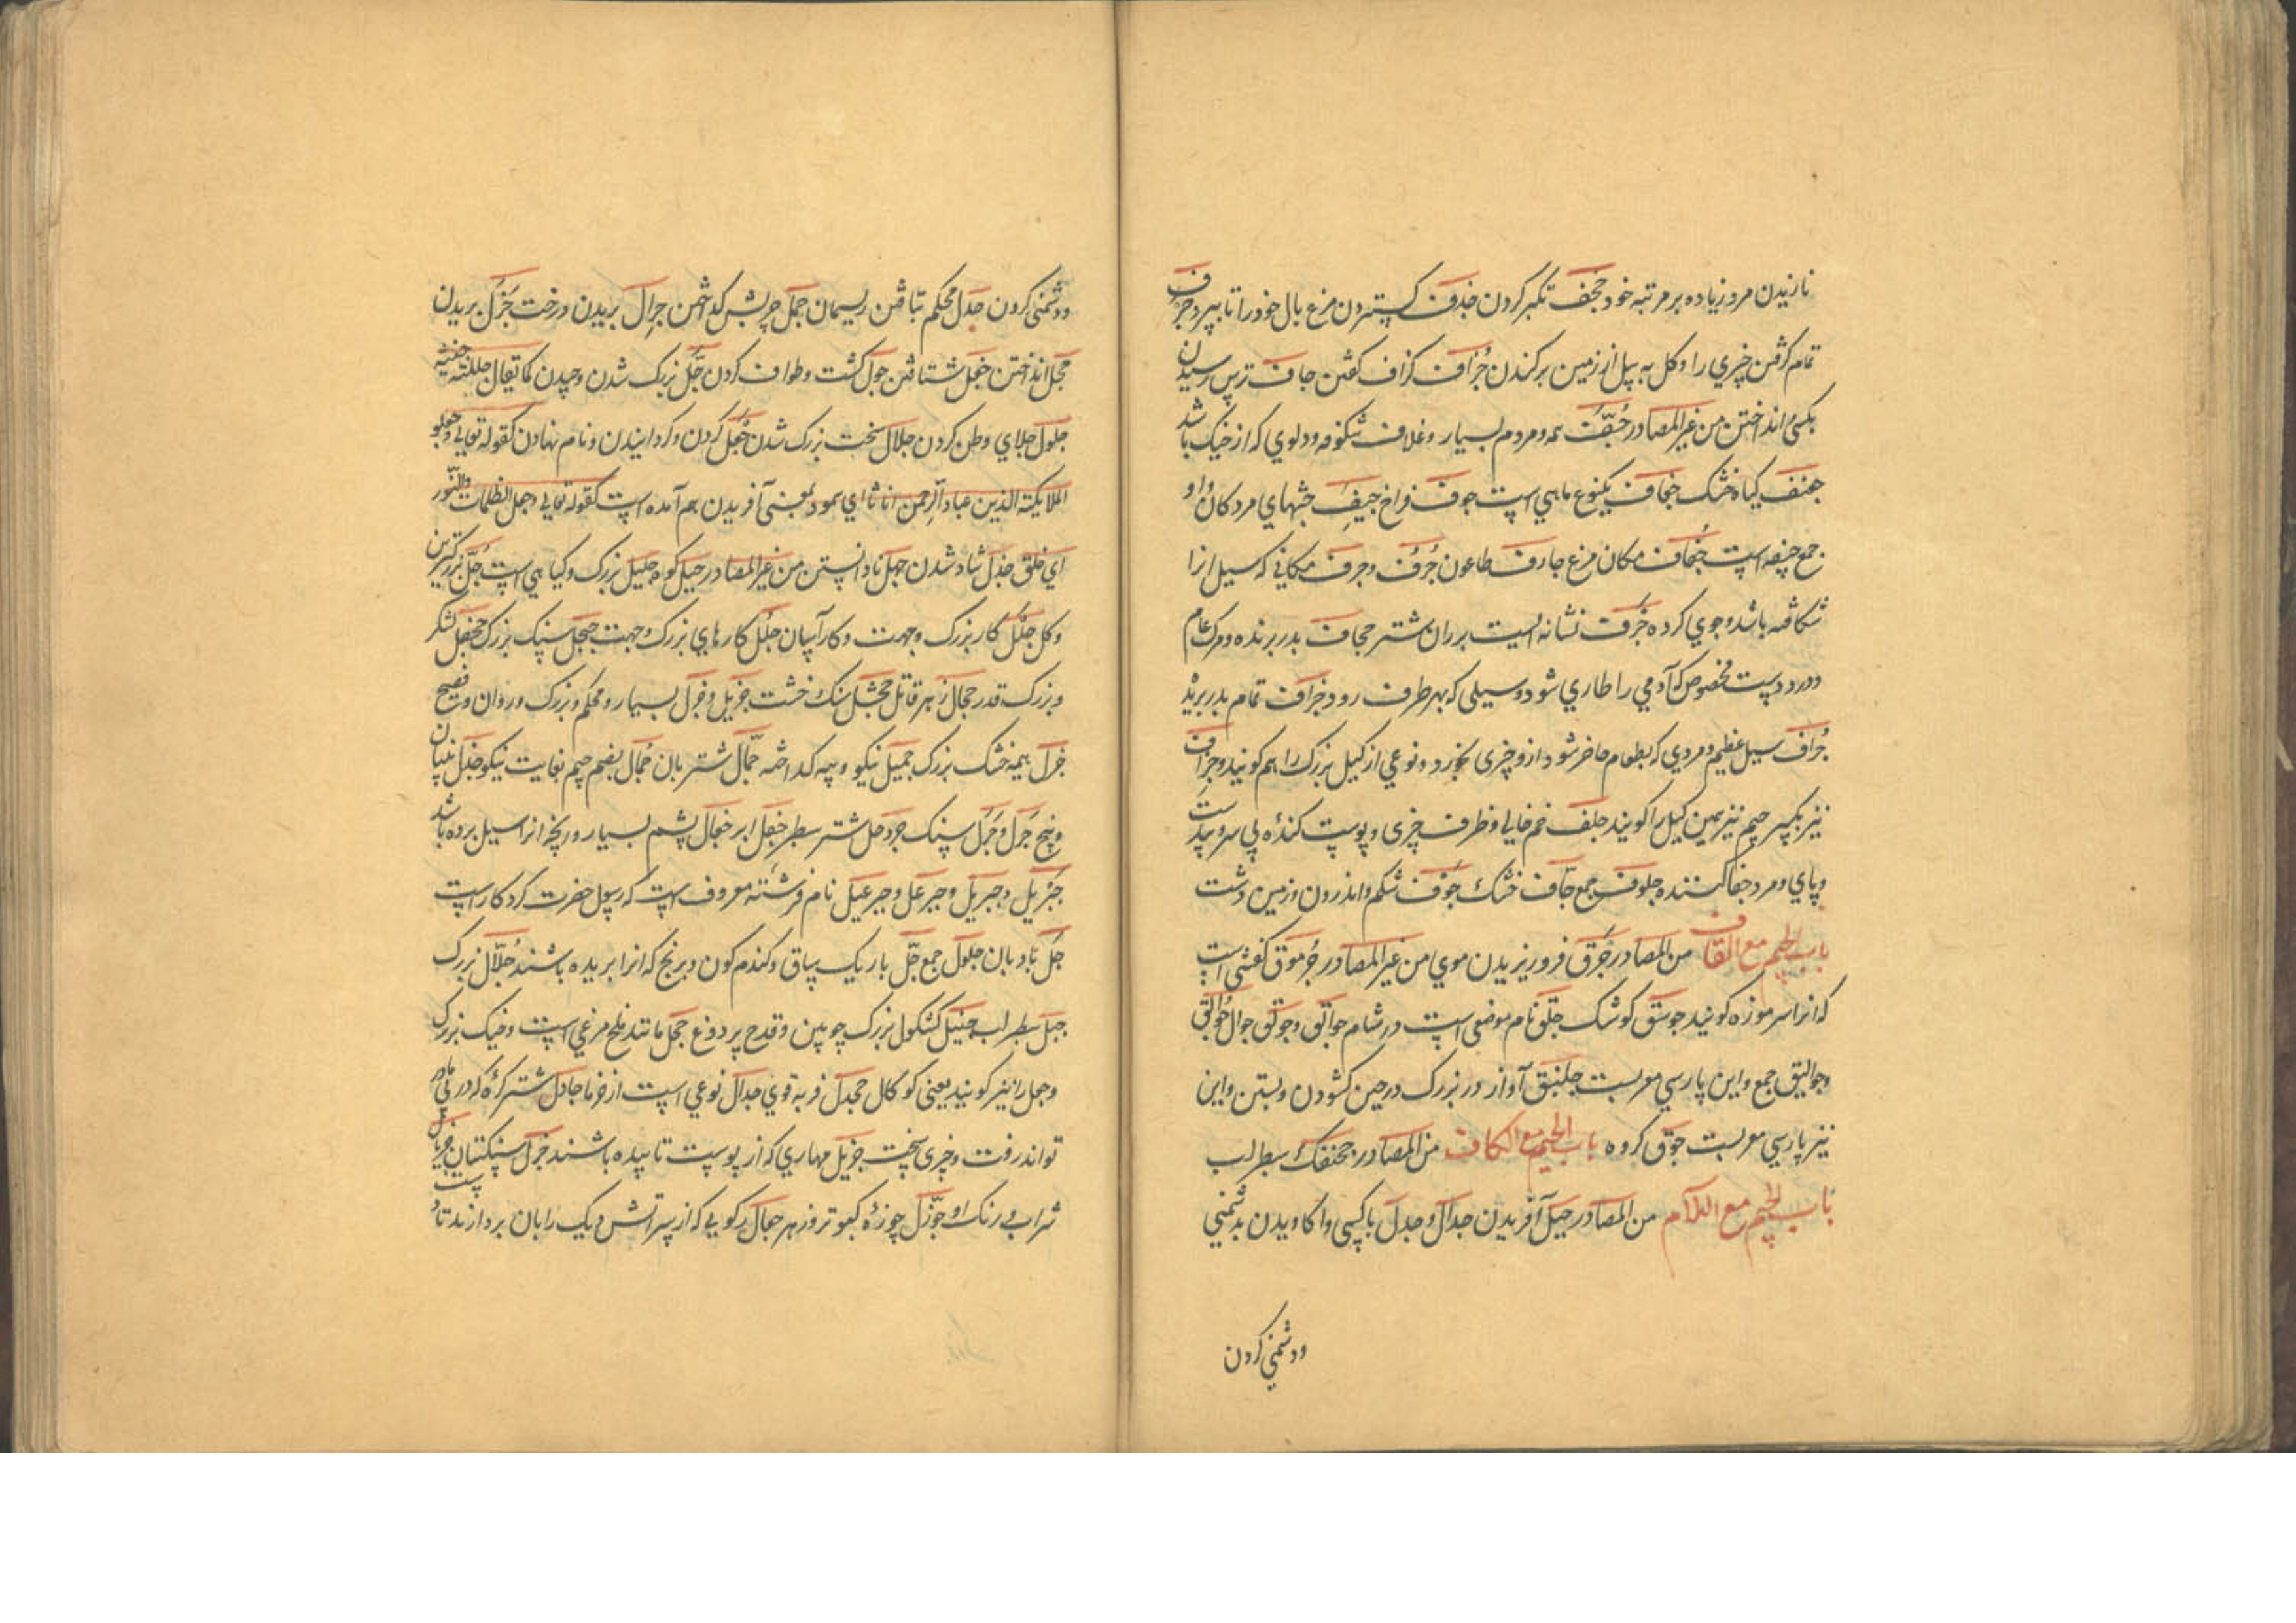 نازیدن مرد زیاده بر مرتبه خود جخف تکبر کردن جذف کستردن مرغ بال خود را تا بپرد جرف
تمام کرفتن چیزي را و کل به بیل از زمین برکندن جزاف کزاف کفتن جاف ترس رسیدن
بکسی انداختن من غیر المصادر جف همه و مردم بسیار و غلاف شکوفه و دلوي که از خیک باشد
جفف کیاه خشک یکنوع ماهي است جوف فراخ جیف جثهاي مردکان و او
جمع جیفه است مکان مرغ جارف طاعون جرف و جرف مکاني که سیل انرا
شکافته باشد و جوي کرده جرف نشانه ایست بر ران شتر جحاف بدر برنده و مرک عام
و درد مخصوص که آدمي را طاري شود و سیلی که بهر طرف رود جزاف تمام بدر برند
جراف سیل عظیم و مردي که بطعام حاضر شود ازو چیزی نخورد و نوعي از کیل بزرک را هم کویند و جراف
نیز بکسر جیم نیز همین کیل را کویند جلف خم خالي و ظرف چیزی و پوست کنده بي سر و بیدست
و پاي و مرد جفا کننده جلوف جمع جاف خشک جوف شکم و اندرون و زمین دشت
باب الجیم مع القاف من المصادر جرق فرو ریزیدن موي من غیر المصادر جرموق کفشي است
که انرا سر موزه کویند جوسق کوشک جلق نام موضعي است در شام جوالق و جولق جوال جوالق
و جوالیق جمع و این پارسي معربست جلنبق آواز در بزرک در حین کشودن و بستن و این
نیز پارسي معربست جوق کروه باب الجیم مع الکاف من المصادر سطبر لب
باب الجیم مع اللام من المصادر جبل آفریدن جدال و جدل با کسی واکاویدن بدشمني
ودشمني کردن
ودشمني کردن جدل محکم تافتن ریسمان جمل چربش کداختن جرال بریدن درخت جزل بریدن
انداختن جفل شتافتن جول کشت و طواف کردن جل بزرک شدن و چیدن کما یقال جللته
جلول جلاي وطن کردن جلال سخت بزرک شدن جعل کردن و کردانیدن و نام نهادن کقوله تعالي و جعلوا
الملایکة الذین عباد الرحمن اناثا اي سموا و بمعنی آفریدن هم آمده است کقوله تعالي و جعل الظلمات والنور
اي خلق جذل شاد شدن جهل نادانستن من غیر المصادر جبل کوه جلیل بزرک و کیاهي است جل بزرکترین
و کل جلل کار بزرک و جهت و کار آسان جلل کارهاي بزرک و جهت جیجل سنک بزرک جحفل لشکر
و بزرک قدر زهر قاتل سنک خشت جزیل و جزل بسیار و محکم و بزرک و روان و فصیح
جزل هیمه خشک بزرک جمیل نیکو و پیه کداخته جمال شتربان جمال بضم جیم بغایت نیکو جذل
و بیخ جرل و جرل سنک جردحل شتر سطبر جفل ابر جفال پشم بسیار و ریخ انرا سیل برده باشد
جبریل و جبرییل و جبرعل و جبرعیل نام فرشته معروف است که رسول حضرت کردکار است
جل بادبان جلول جمع جل باریک ساق و کندم کون و برنج که انرا بریده باشند جلال بزرک
جبل سطبر لب جنبل کشکول بزرک چوبین و قدح پر دوغ جحل مانند ملخ مرغي است و خیک بزرک
و جعل را نیز کویند یعنی کوکال مجدل فربه قوي جدال نوعي است از خرما جادل شتر کره که در پي مادر
تواند رفت و چیزی سخت جزیل مهاري که از پوست تابیده باشند جرل سنکستان جریال
شراب و رنک او جوزل جوزه کبوتر و زهر جعال رکویي که از سر آتش دیک را بان بردارند تا دست